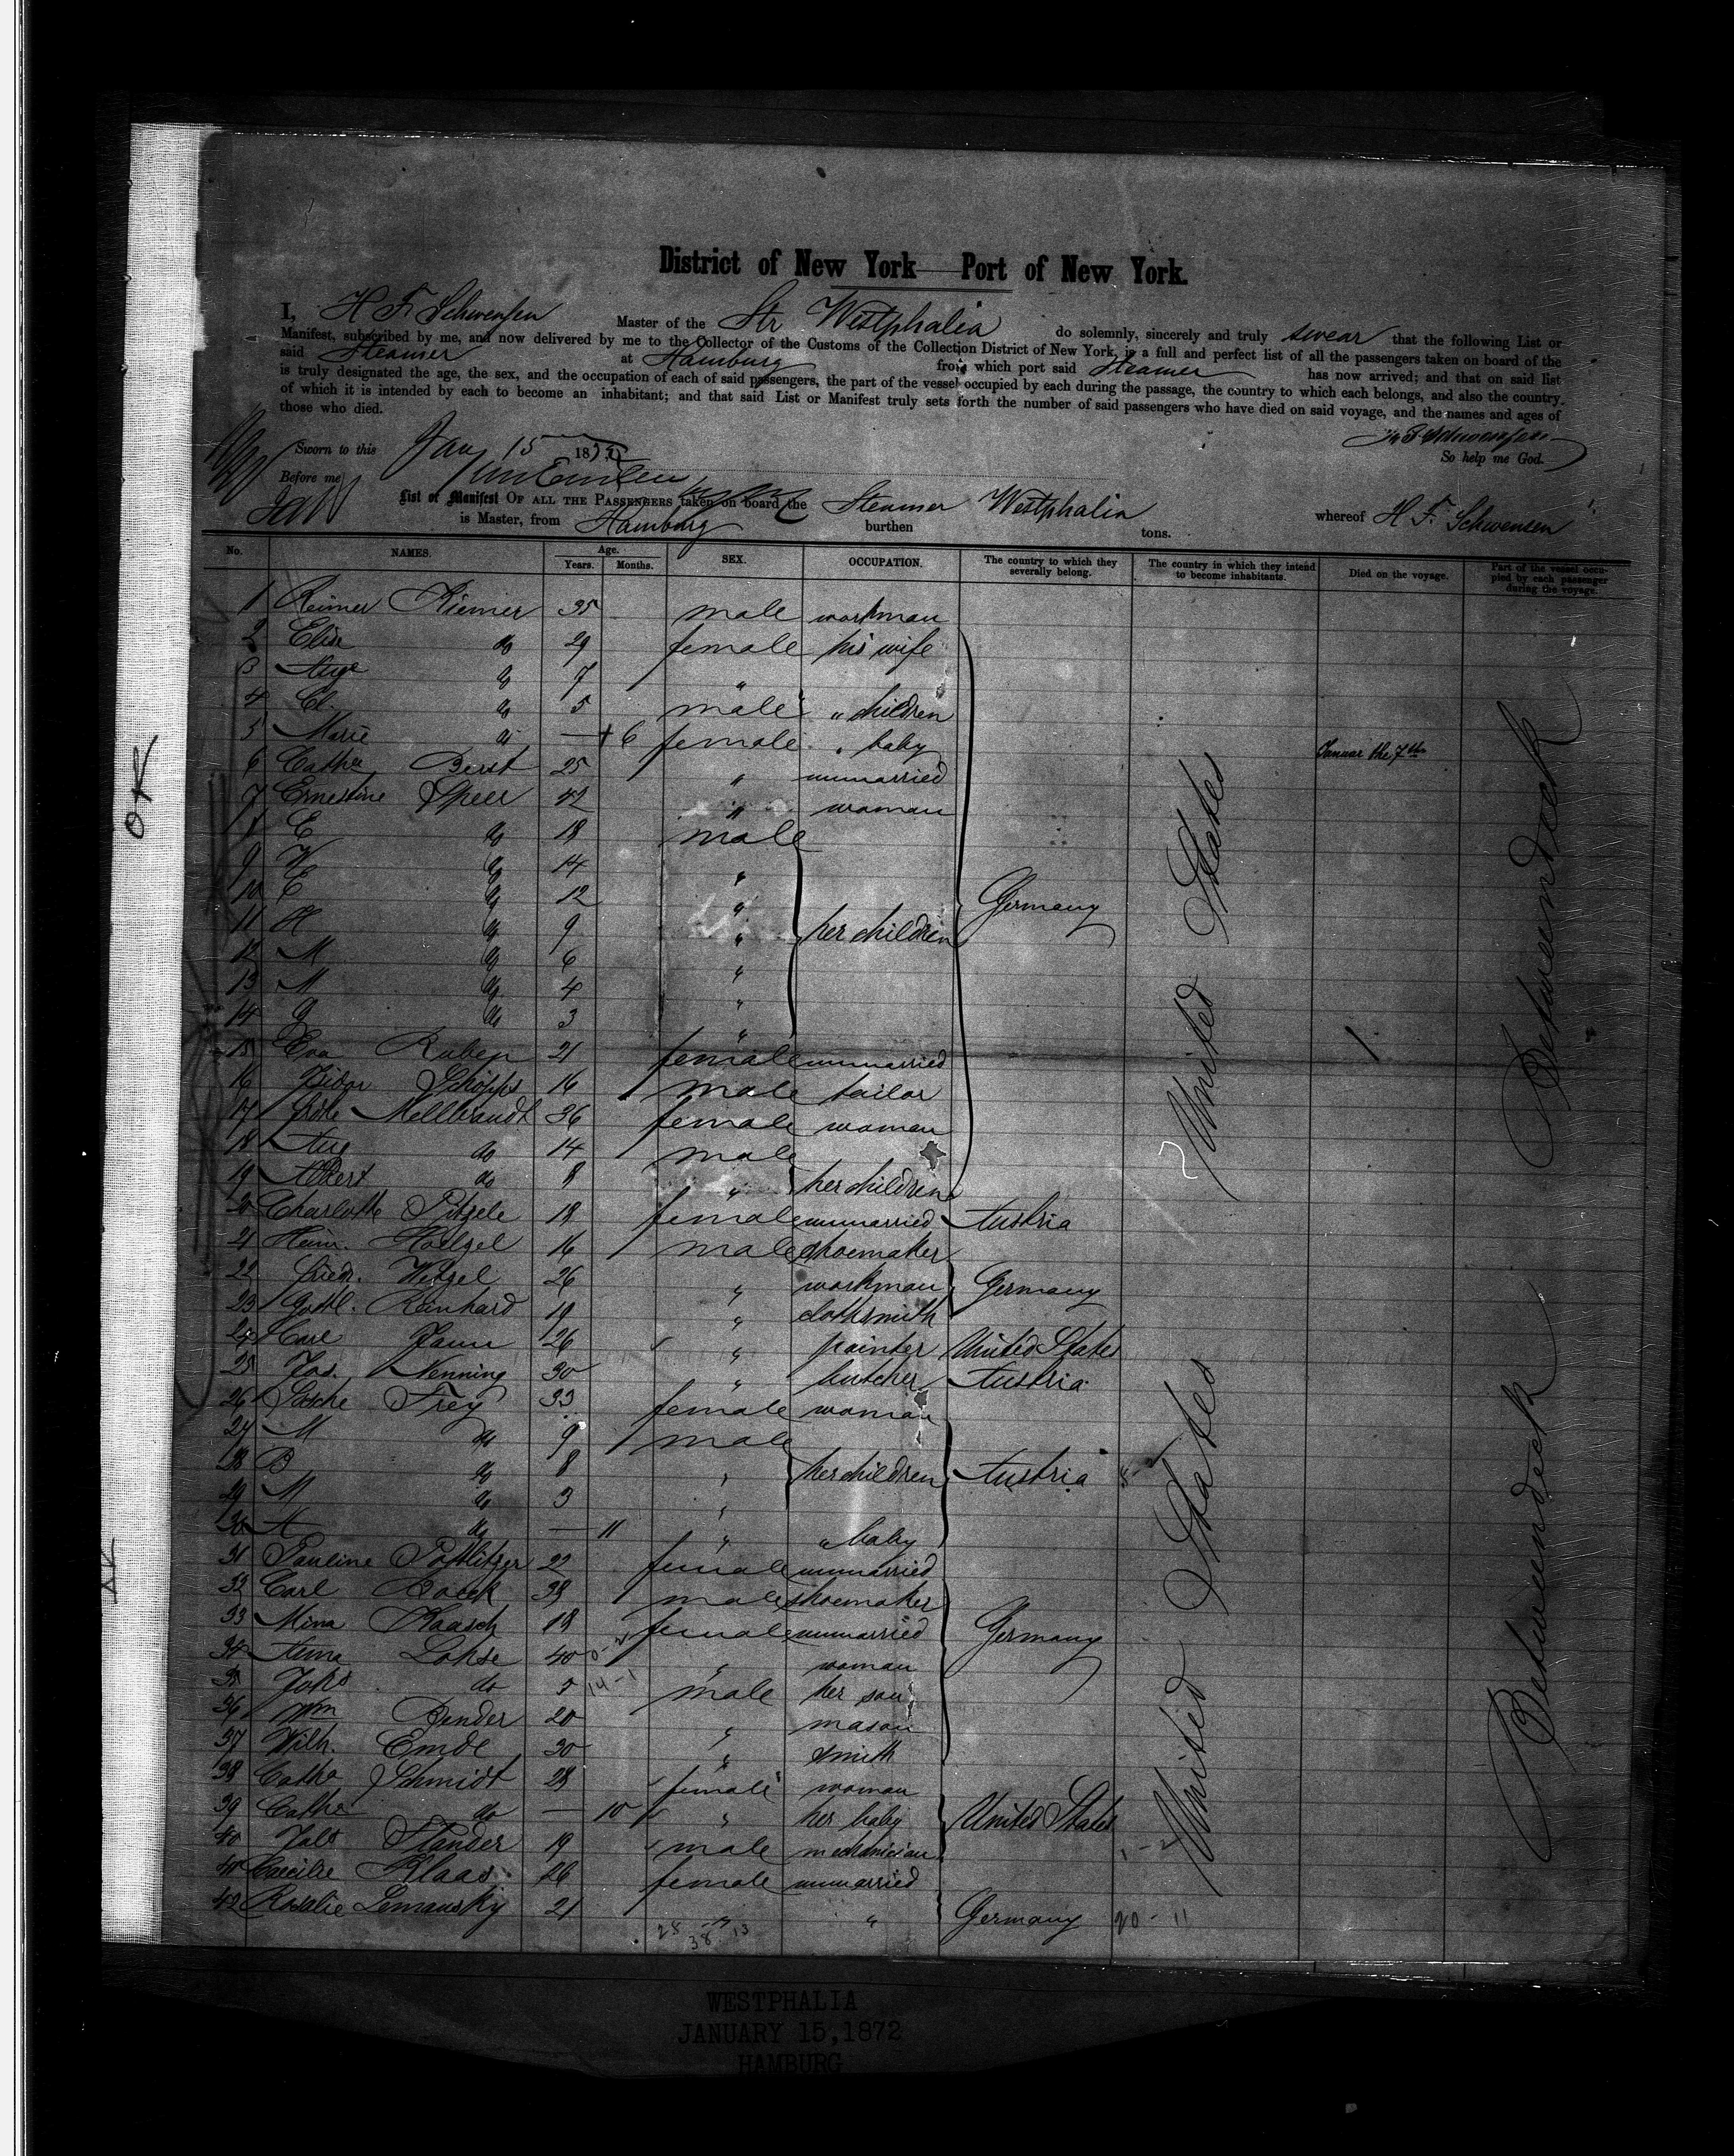 District of New York — Port of New York.
I, H F Schwensen Master of the Str Westphalia do solemnly, sincerely and truly swear that the following List or
Manifest, subscribed by me, and now delivered by me to the Collector of the Customs of the Collection District of New York, is a full and perfect list of all the passengers taken on board of the
said Steamer at Hamburg from which port said Steamer has now arrived; and that on said list
is truly designated the age, the sex, and the occupation of each of said passengers, the part of the vessel occupied by each during the passage, the country to which each belongs, and also the country
of which it is intended by each to become an inhabitant; and that said List or Manifest truly sets forth the number of said passengers who have died on said voyage, and the names and ages of
those who died.
H F Schwensen
Sworn to this Jan 15 1872
So help me God.
Before me
List or Manifest OF ALL THE PASSENGERS taken on board the Steamer Westphalia whereof H. F. Schwensen
is Master, from Hamburg burthen tons.
No. NAMES. Age. Years. Months. SEX. OCCUPATION. The country to which they severally belong. The country in which they intend to become inhabitants. Died on the voyage. Part of the vessel occupied by each passenger during the voyage.
1 Reimer Riemer 35 male workman
2 Elise do 29 female his wife
3 Auge do 7 "
4 Cl. do 5 male " children
5 Marie do — + 6 female " baby Januar the 7th
6 Cathe Berst 25 " unmarried
7 Ernestine Speer 42 " woman
8 E do 18 male
9 W do 14 "
10 E do 12 " Germany
11 H do 9 " her children
12 M do 6 "
13 M do 4 "
14 G do 3 "
15 Eva Ruben 21 female unmarried
16 Isidor Schopps 16 male tailor
17 Frdke Mellbrandt 36 female woman
18 Aug do 14 male
19 Albert do 8 " her children
20 Charlotte Pitzele 18 female unmarried Austria
21 Heinr. Hoelzel 16 male shoemaker
22 Friedr. Wetzel 26 " workman Germany
23 Gottl. Reinhard 19 " clothsmith
24 Carl Jann 26 " painter United States
25 Jos. Nenning 30 " butcher Austria
26 Frey 33 female woman
27 M do 9 male
28 B do 8 " her children Austria
29 M do 3 "
30 A do — 11 " " baby
31 Pauline 22 female unmarried
32 Carl Bocek 38 male shoemaker
33 Mina Raasch 18 female unmarried Germany
34 Anna Lohse 40 " woman
35 Johs do 5 male her son
36 Wm Bender 20 " mason
37 Wilh. Emde 30 " smith
38 Catha Schmidt 28 female woman
39 Cathe do — 10 " her baby United States
40 Stander 19 male mechanician
41 Caecilie Klaas 26 female unmarried
42 Rosalie Lemansky 21 " " Germany
20 - 11
United States
United States
Betweendeck
Betweendeck
1
OK
WESTPHALIA
JANUARY 15, 1872
HAMBURG